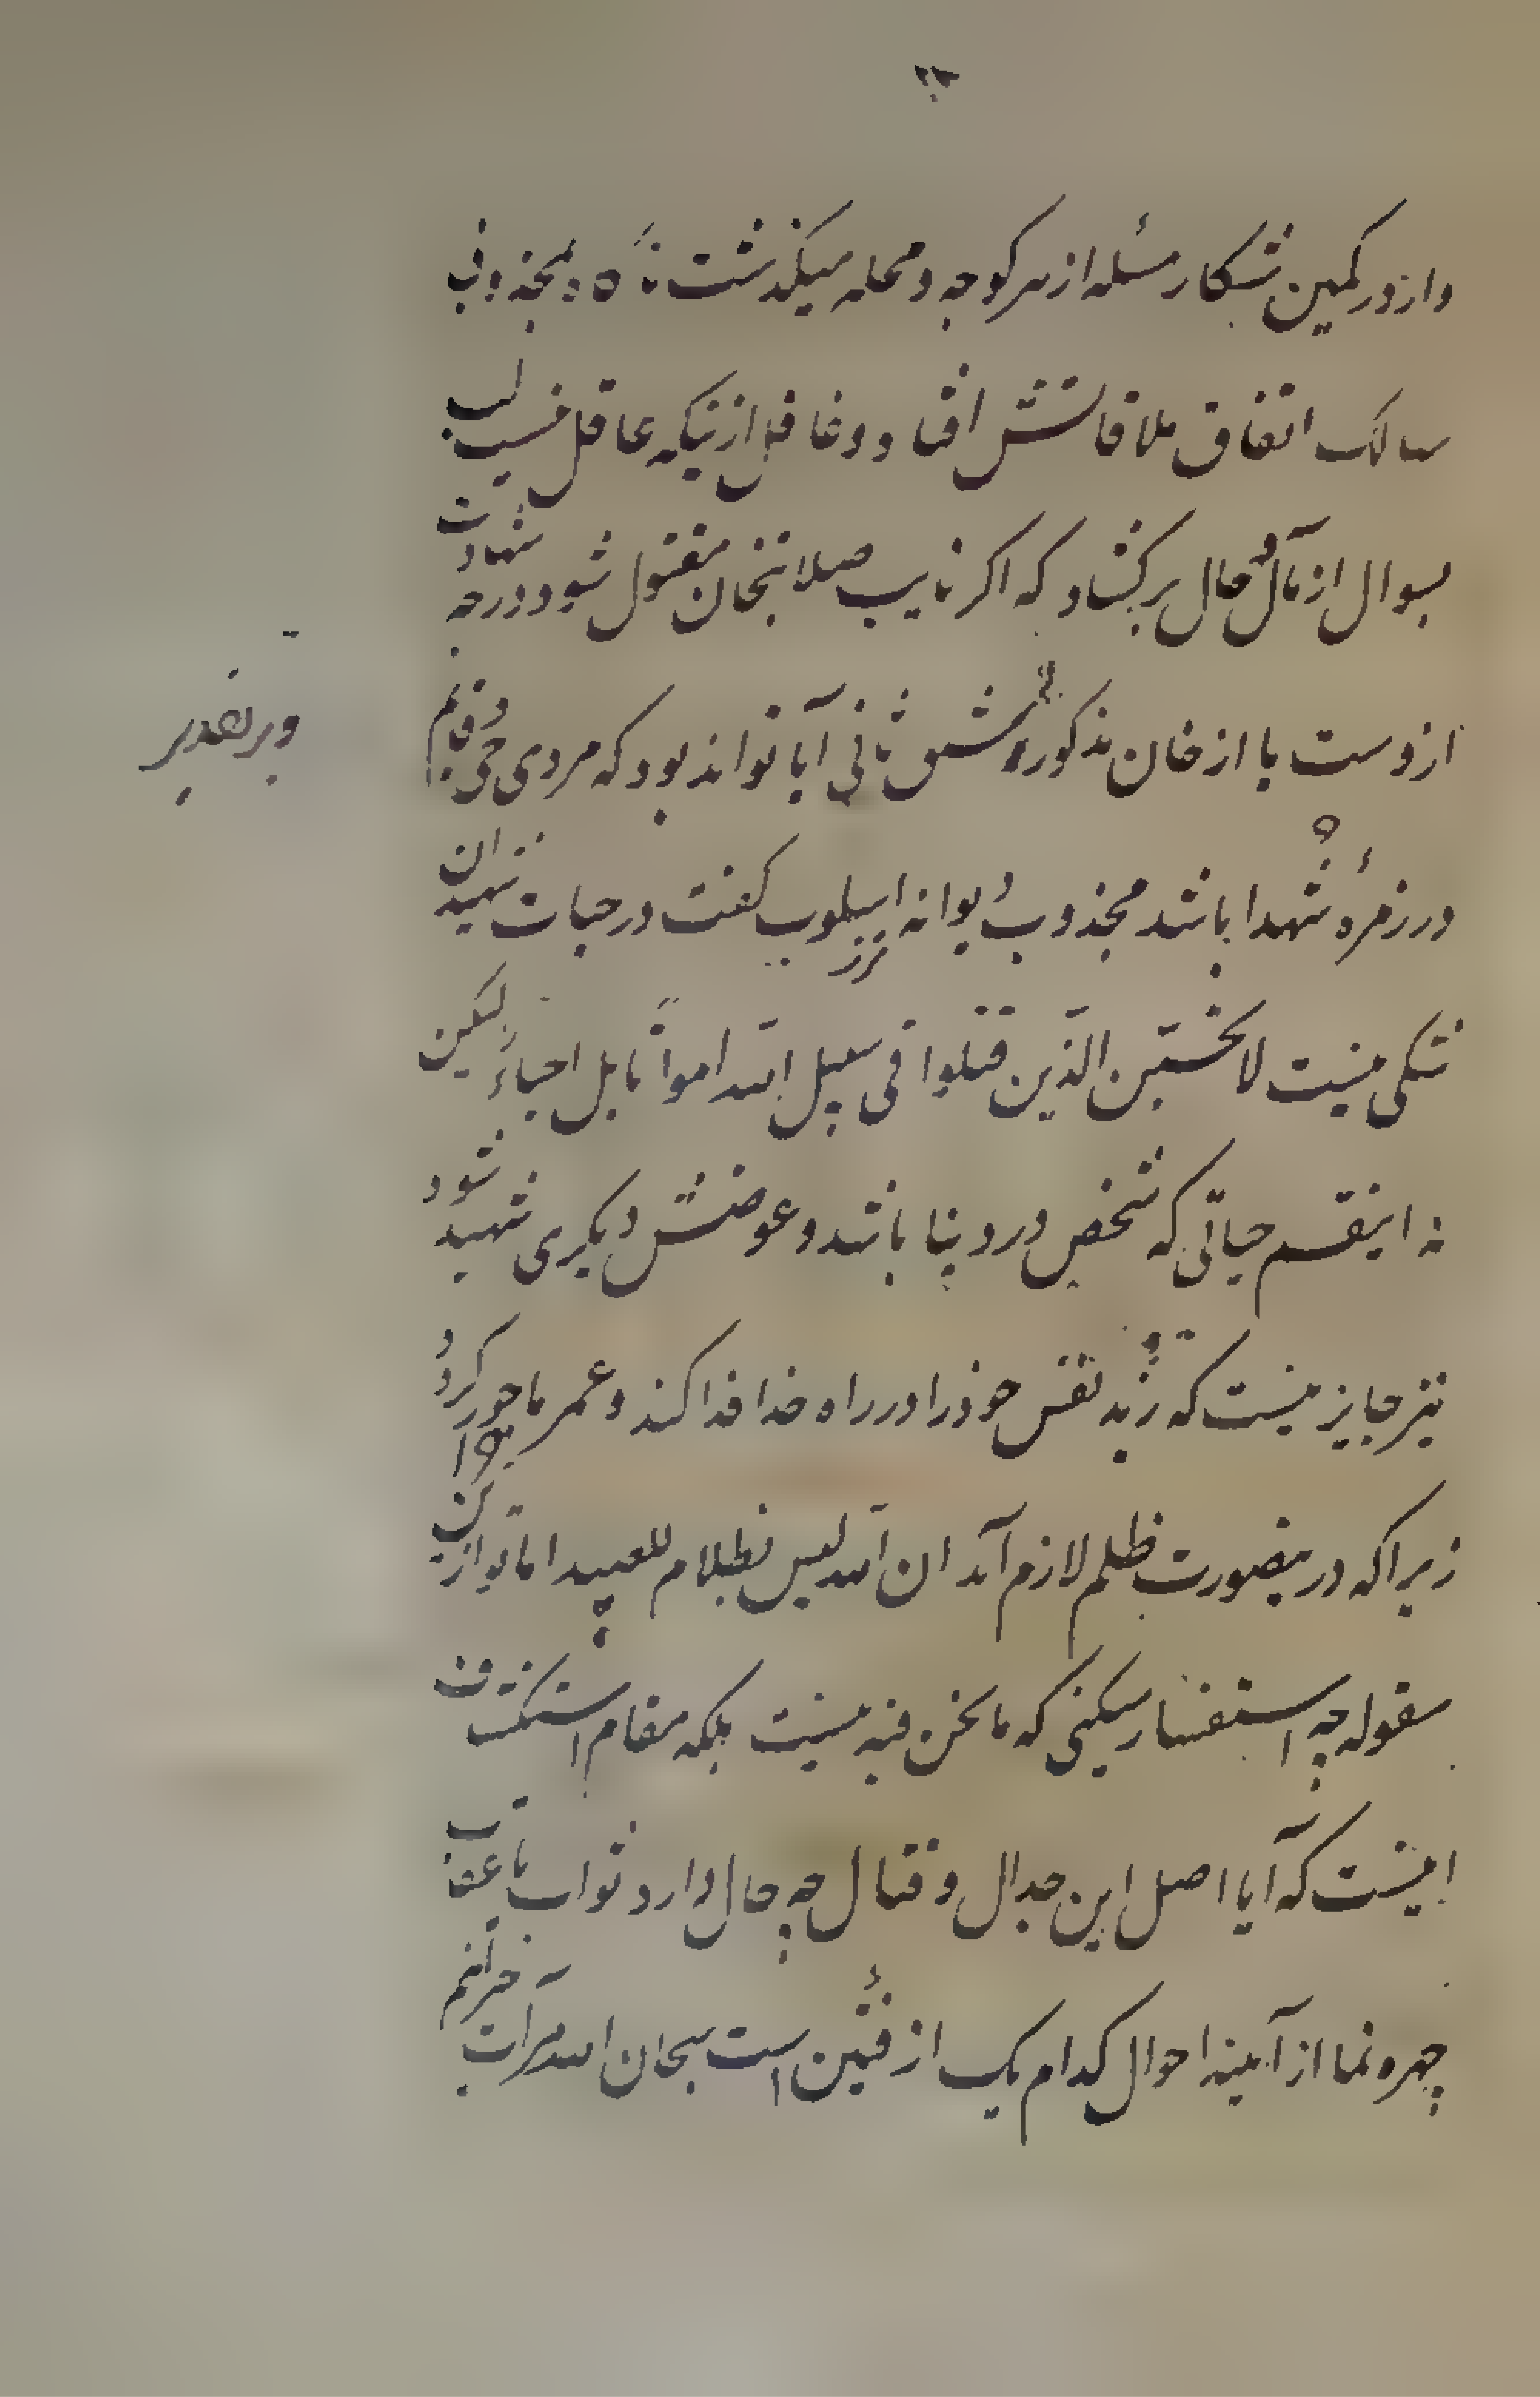 و از در کمین شکار مسئله از هر کوچه و محله میگذشت ناگاه بمجذوبی
سالک اتفاق ملاقاتش افتاد و غافل ازینکه عاقل نیست لب
بسوال از مآل و حال برکشاد که اکر نایب صلابتخان مقتول شود درجه شهادت
از وست یا از خان مذکور و بر تقدیر شق ثانی آیا تواند بود که مردی حی و قایم
در زمرهٔ شهدا باشد مجذوب دیوانه اسلوب کفت در حیات شهیدان
شکی نیست لا تحسبن الذین قتلوا فی سبیل الله امواتا بل احیاءٌ لیکن
نه اینقسم حیاتی که شخص در دنیا باشد و عوضش دیکری شهید شود و
نیز جایز نیست که زید نفس خود را در راه خدا فدا کند و عمر ماجور کردد
زیرا که درینصورت ظلم لازم آید ان الله لیس بظلام للعبید اما تو ازین
مقوله چه استفسار میکنی که ما نحن فیه نیست بلکه مقام استکشاف
اینست که آیا اصل این جدال و قتال چه حال دارد ثواب یا عقاب
چهره نما از آیینه احوال کدام یک از فئتین است سبحان الله مرآت